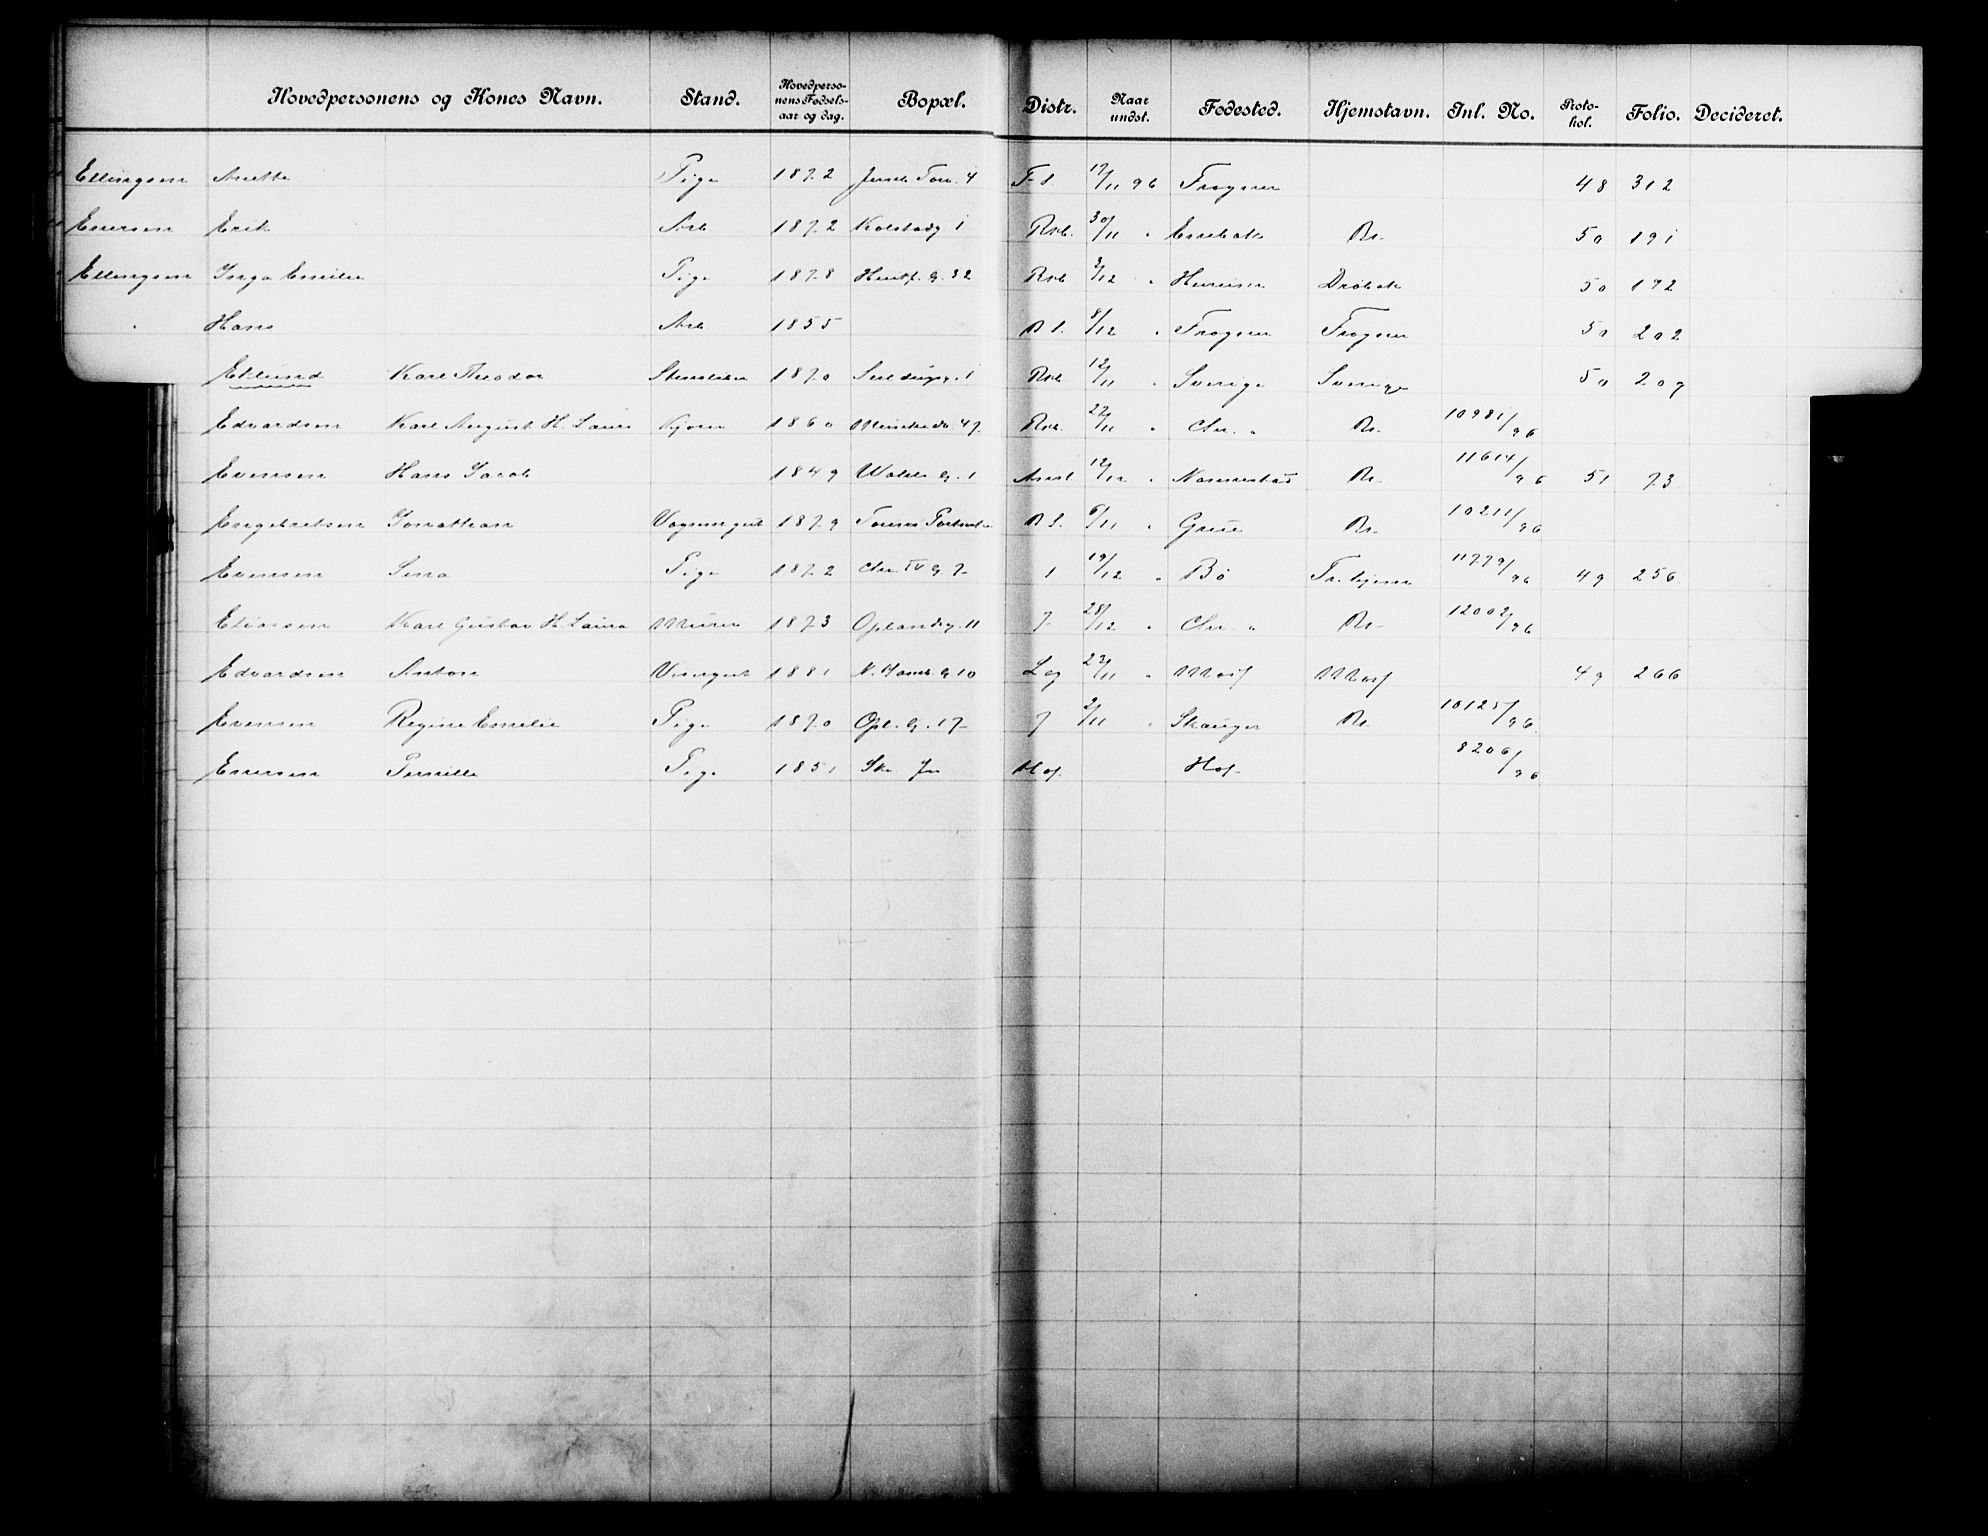 Hovedpersonens og Kones Navn. Stand. Hovedperso-nens Fødsels-aar og dag. Bopæl. Distr. Naar undst. Fødested. Hjemstavn. Inl. No. Proto-kol. Folio. Decideret.
Ellingsen Anette Pige 1872 Torv. 4 F.S. 17/11 96 Frogner 48 312
Enersen Erik Arb 1872 Kolstadg 1 Rvb. 30/11 " Enebak Do. 50 191
Ellingsen Inga Emilie Pige 1878 G. 32 Rvb 3/12 " Drøbak 50 192
" Hans Arb 1855 8/12 " Frogner Frogner 50 202
Eklund Karl Theodor 1870 Rvb 12/11 " Sverige Sverige 50 207
Edvardsen Karl August H. Laura Kjører 1860 47 Rvb. 27/11 " Chr. " 10981/96
Evensen Hans Jacob 1849 G. 1 12/12 " Nannestad 11614/96 51 73
Engebretsen Jonathan Visergut 1879 6/11 " Grue 10211/96
Evensen Sina Pige 1872 Chr. IV G. 7 1 19/12 " Bø Tr.hjem 11779/96 49 256
Eliassen Karl Gustav H. Laura Murer 1873 Oplandsg. 11 7 28/12 " Chr. " 12002/96
Edvardsen Anton Visergut 1881 G 10 Lag 23/11 " Moss Moss 49 266
Evensen Regine Emelie Pige 1870 Opl. G. 17 7 2/11 " 10125/96
Enersen Pernille Pige 1851 Hof. Hof. 8206/96